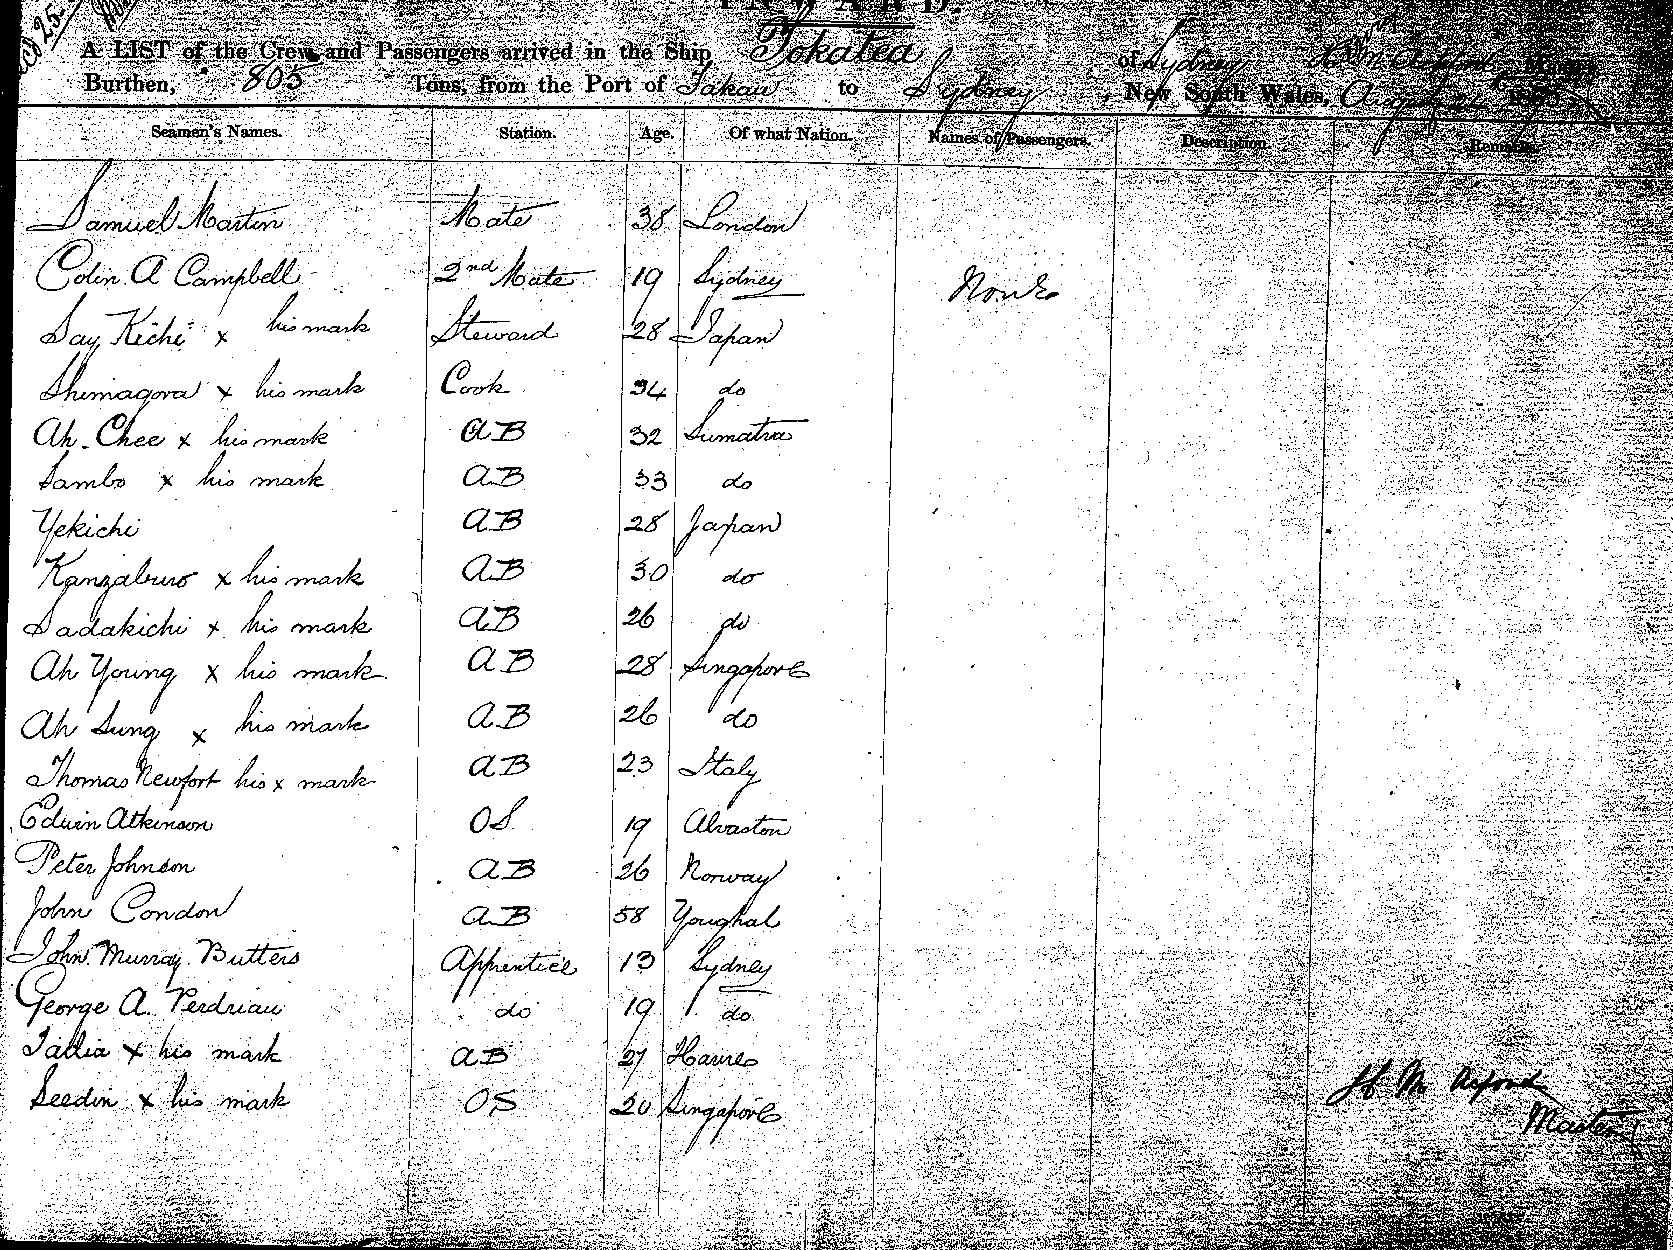 INWARD.
A LIST of the Crew and Passengers arrived in the Ship Tokatea of Sydney
Burthen, 805 Tons, from the Port of Takau to Sydney, New South Wales, August
Seamen's Names. Station. Age. Of what Nation. Names of Passengers. Description. Remarks.
Samuel Martin Mate 38 London
Colin A Campbell 2nd Mate 19 Sydney None
Say Kichi x his mark Steward 28 Japan
Shimagora x his mark Cook 34 do
Ah Chee x his mark AB 32 Sumatra
Sambo x his mark AB 33 do
Yekichi AB 28 Japan
Kanzaburo x his mark AB 30 do
Sadakichi x his mark AB 26 do
Ah Young x his mark AB 28 Singapore
Ah Sung x his mark AB 26 do
Thomas Newfort his x mark AB 23 Italy
Edwin Atkinson OS 19 Alvaston
Peter Johnson AB 26 Norway
John Condon AB 58 Youghal
John Murray Butters Apprentice 13 Sydney
George A. Perdriau do 19 do
x his mark AB 27 Havre
Seedin x his mark OS 20 Singapore
Master